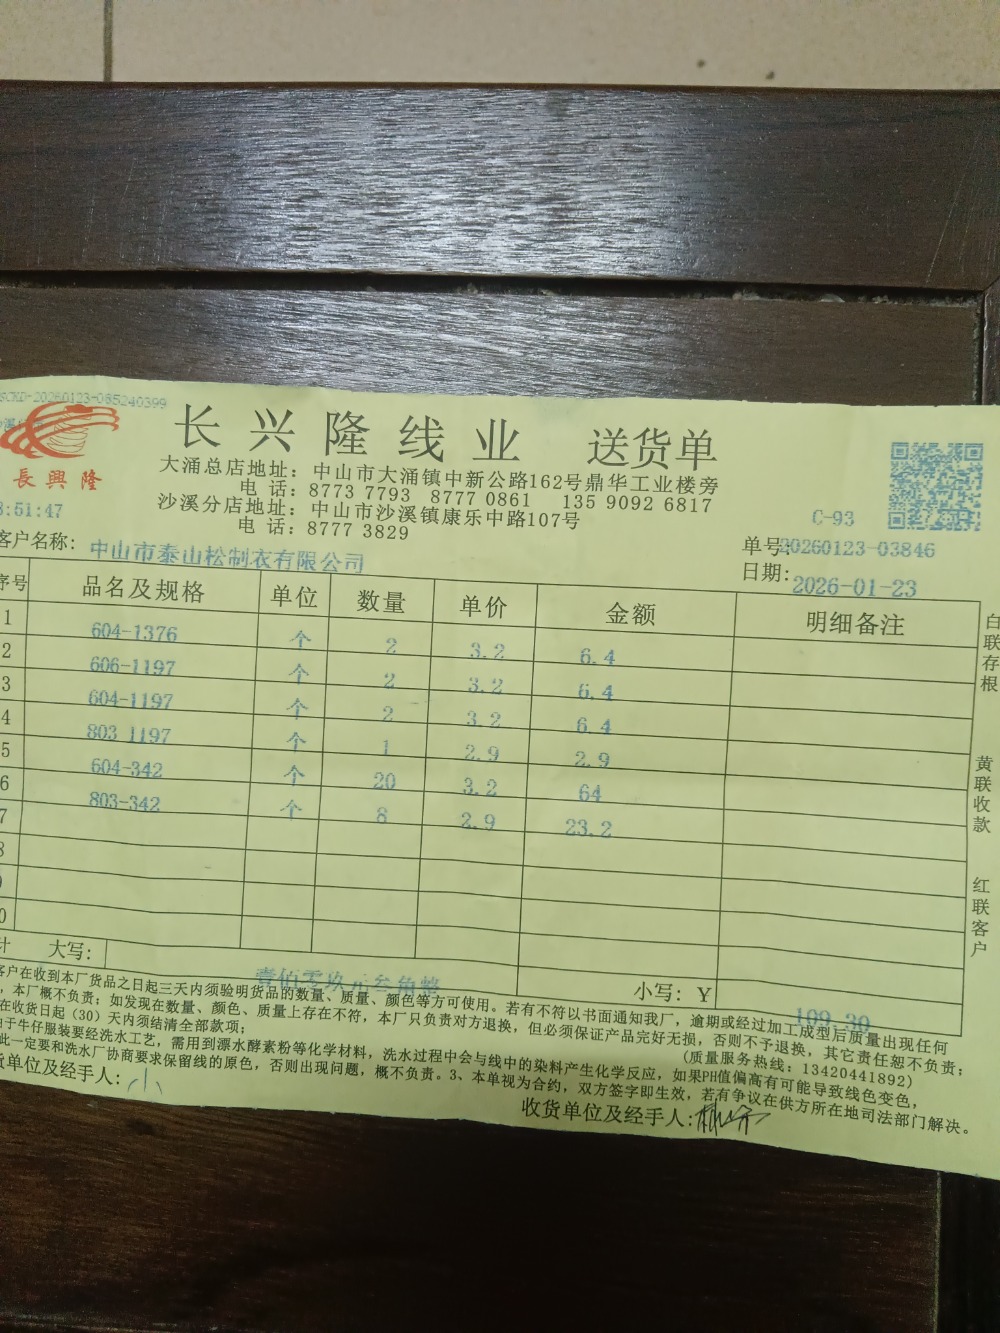 SCKD-20260123-085240399
長興隆
长兴隆线业 送货单
大涌总店地址: 中山市大涌镇中新公路162号鼎华工业楼旁
电 话: 8773 7793 8777 0861 135 9092 6817
沙溪分店地址: 中山市沙溪镇康乐中路107号
电 话: 8777 3829
:51:47
C-93
客户名称: 中山市泰山松制衣有限公司
单号:20260123-03846
日期: 2026-01-23
序号 品名及规格 单位 数量 单价 金额 明细备注
1 604-1376 个 2 3.2 6.4
2 606-1197 个 2 3.2 6.4
3 604-1197 个 2 3.2 6.4
4 803 1197 个 1 2.9 2.9
5 604-342 个 20 3.2 64
6 803-342 个 8 2.9 23.2
7
8
9
0
计 大写: 壹佰零玖元叁角整 小写: Y 109.30
白联存根
黄联收款
红联客户
客户在收到本厂货品之日起三天内须验明货品的数量、质量、颜色等方可使用。若有不符以书面通知我厂，逾期或经过加工成型后质量出现任何
，本厂概不负责；如发现在数量、颜色、质量上存在不符，本厂只负责对方退换，但必须保证产品完好无损，否则不予退换，其它责任恕不负责；
在收货日起（30）天内须结清全部款项； (质量服务热线: 13420441892)
由于牛仔服装要经洗水工艺，需用到漂水酵素粉等化学材料，洗水过程中会与线中的染料产生化学反应，如果PH值偏高有可能导致线色变色，
此一定要和洗水厂协商要求保留线的原色，否则出现问题，概不负责。3、本单视为合约，双方签字即生效，若有争议在供方所在地司法部门解决。
货单位及经手人: 小
收货单位及经手人: